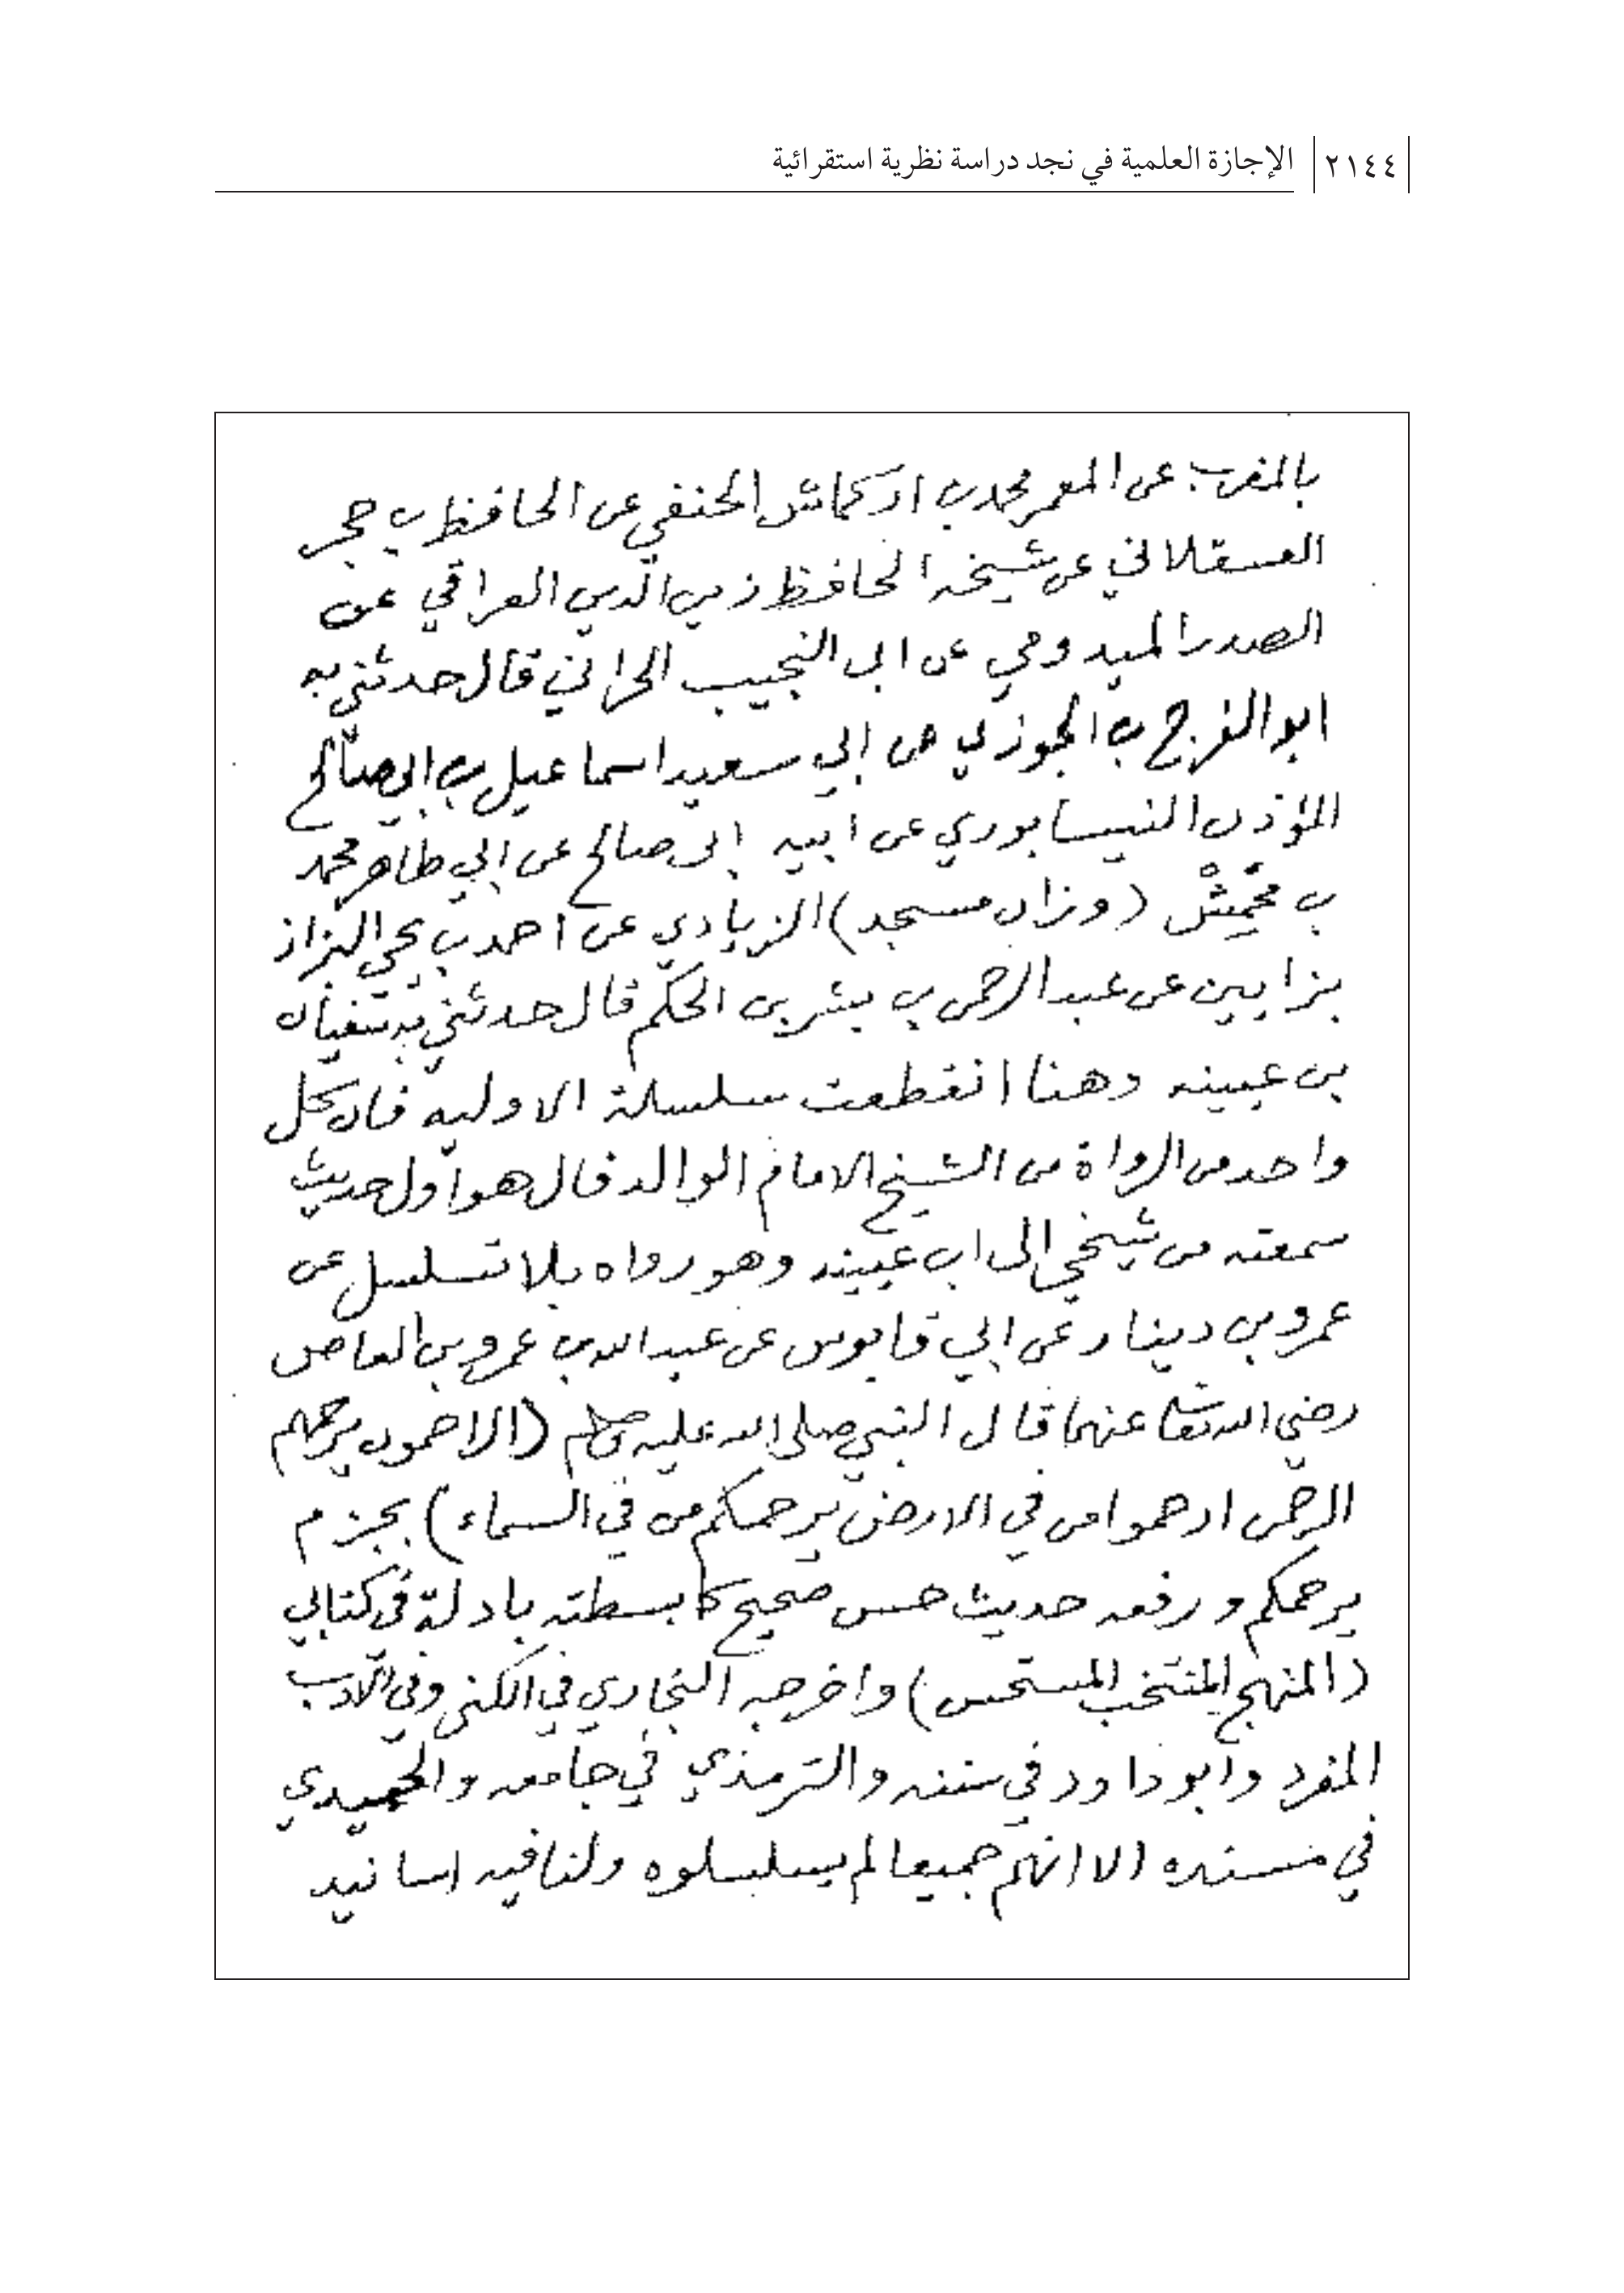 ٢١٤٤ الإجازة العلمية في نجد دراسة نظرية استقرائية
بالمغرب عن المعمر محمد بن اركماش الحنفي عن الحافظ بن حجر
العسقلاني عن شيخه الحافظ زين الدين العراقي عن
الصدر الميدومي عن ابى النجيب الحراني قال حدثني به
ابو الفرج بن الجوزي عن ابي سعيد اسماعيل بن ابي صالح
المؤذن النيسابوري عن ابيه ابى صالح عن ابي طاهر محمد
بن مَحْمِشْ (وزان مسجد) الزيادي عن احمد بن يحي البزاز
بزايين عن عبد الرحمن بن بشر بن الحكم قال حدثني به سفيان
بن عيينه وهنا انقطعت سلسلة الاوليه فان كل
واحد من الرواة من الشيخ الامام الوالد قال هو اول حديث
سمعته من شيخي الى ابن عيينه وهو رواه بلا تسلسل عن
عمرو بن دينار عن ابي قابوس عن عبد الله بن عمرو بن العاص
رضي الله تعا عنهما قال النبي صلى الله عليه وسلم (الراحمون يرحمهم
الرحمن ارحموا من في الارض يرحمكم من في السماء) بجزم
يرحمكم ورفعه حديث حسن صحيح كما بسطته بادلة في كتابي
(المنهج المنتخب المستحسن) واخرجه البخاري في الكنى وفي الادب
المفرد وابو داود في سننه والترمذي في جامعه والحميدي
في مسنده الا انهم جميعا لم يسلسلوه ولنا فيه اسانيد